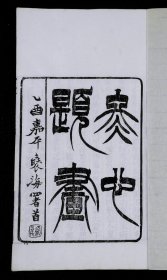 冬心
題畫
乙酉嘉平海署首